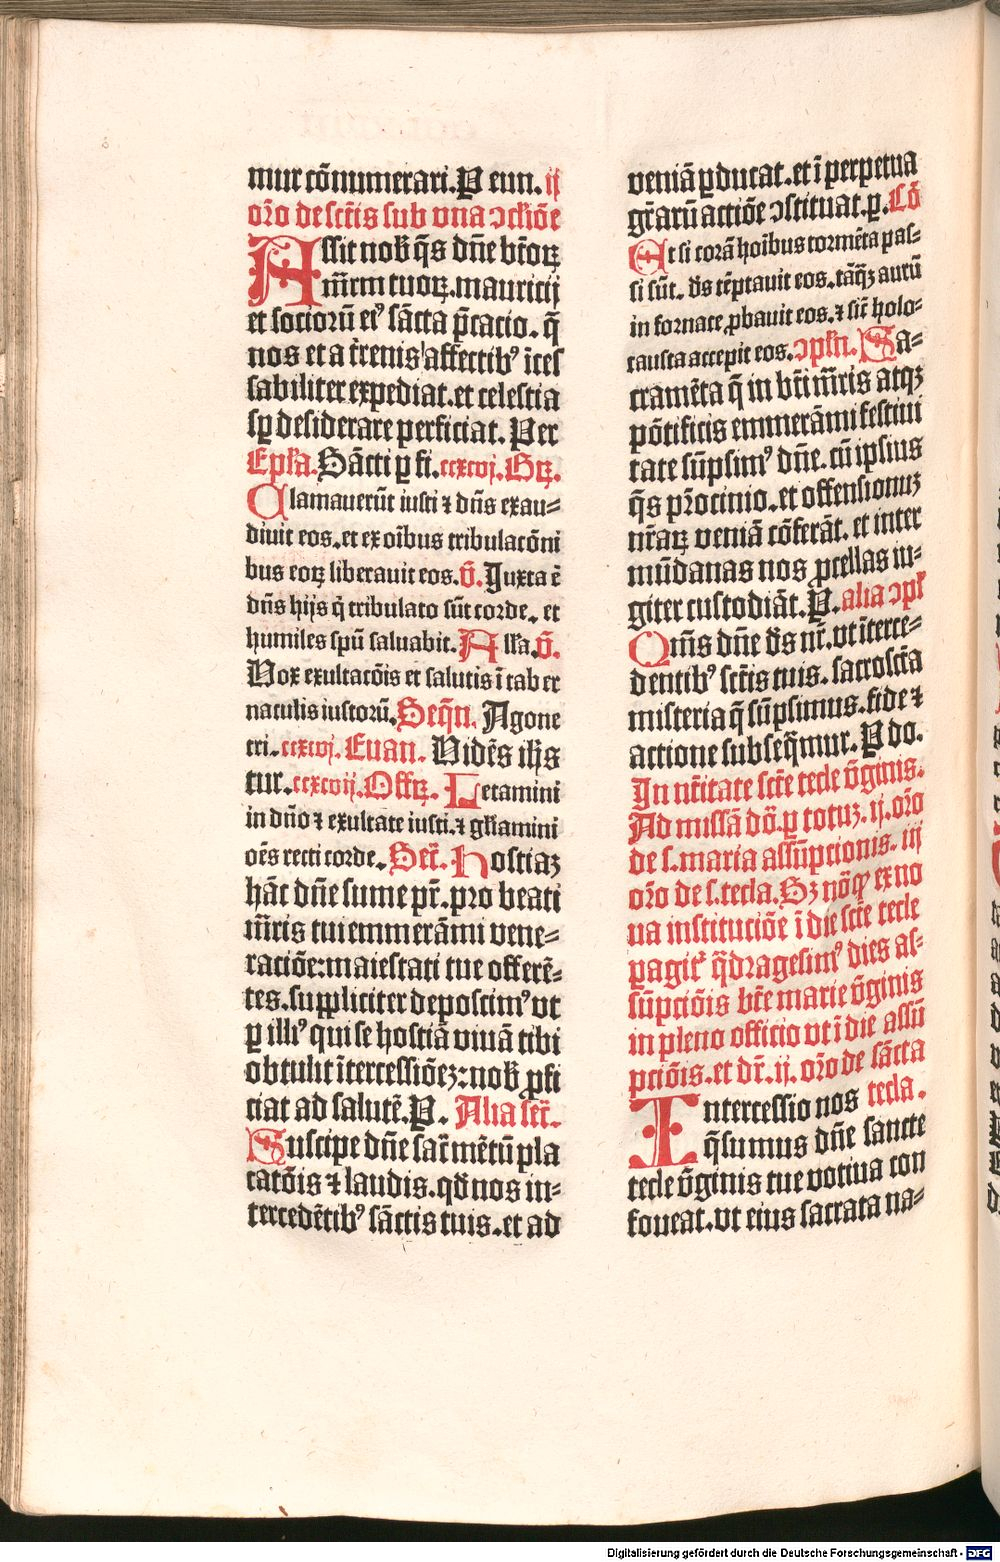 mur cōnumerari. P eun. ij
oro de sctis sub vna ɔclōe
Assit nob̄ q̄s dn̄e bt̄oꝝ
m̄rm tuoꝝ. mauricij
et socioꝝ eiꝰ sācta p̄catio. q̄
nos et a t̄renis affectibꝰ īces
sabiliter expediat. et celestia
sꝑ desiderare perficiat. Per
Epl̄a. Sācti ꝑ fi. ccxcvj. Gꝝ.
Clamauerūt iusti ⁊ dn̄s exau⸗
diuit eos. et ex oībus tribulacōni
bus eoꝝ liberauit eos. v̄. Juxta ē
dn̄s hijs q̄ tribulato sūt corde. et
humiles spū saluabit. Alla. v̄.
Vox exultacōis et salutis ī tab er
naculis iustorū. Seq̄n. Agone
tri. ccxcvj. Euan. Vidēs ih̄s
tur. ccxcvij. Offꝝ. Letamini
in dn̄o ⁊ exultate iusti. ⁊ gl̄iamini
oēs recti corde. Secr̄. Hostiaꝫ
hāc dn̄e sume pr̄. pro beati
m̄ris tui emmerāmi vene⸗
raciōe: maiestati tue offerē⸗
tes. suppliciter deposcimꝰ vt
ꝑ illiꝰ qui se hostiā viuā tibi
obtulit ītercessiōeꝫ: nob̄ ꝓfi
ciat ad salutē. P. Alia secr̄.
Suscipe dn̄e sacr̄mētū pla
catōis ⁊ laudis. qd̄ nos in⸗
tercedētibꝰ sāctis tuis. et ad
veniā ꝑducat. et ī perpetua
gr̄arū actiōe ɔstituat. ꝑ. Cō
Et si corā hoībus tormēta pas⸗
si sūt. ds̄ tēptauit eos. tāqꝫ aurū
in fornace ꝓbauit eos. ⁊ sic̄ holo⸗
causta accepit eos. ɔpl̄n. Sa⸗
cramēta q̄ in bt̄i m̄ris atqꝫ
pōtificis emmerāmi festiui
tate sūpsimꝰ dn̄e. cū ipsius
q̄s pr̄ocinio. et offensionuꝫ
nr̄aꝝ veniā cōferāt. et inter
mūdanas nos ꝓcellas iu⸗
giter custodiāt. P. alia ɔpl̄
Qm̄s dn̄e ds̄ nr̄. vt īterce⸗
dentibꝰ sctīs tuis. sacroscta
misteria q̄ sūpsimus. fide ⁊
actione subseq̄mur. P do.
In nt̄itate scte tecle v̄ginis.
Ad missā dō. ꝑ totuꝫ. ij. oro
de s. maria assūpcionis. iij
oro de s. tecla. Sꝫ nōꝙ ex no
ua instituciōe ī die scte tecle
pagit̄ q̄dragesimꝰ dies as⸗
sūpciōis bt̄e marie v̄ginis
in pleno officio vt ī die assū
pciōis. et dr̄. ij. oro de sācta
tecla.
Intercessio nos
q̄sumus dn̄e sancte
tecle v̄ginis tue votiua con
foueat. vt eius sacrata na⸗
Digitalisierung gefördert durch die Deutsche Forschungsgemeinschaft - DFG